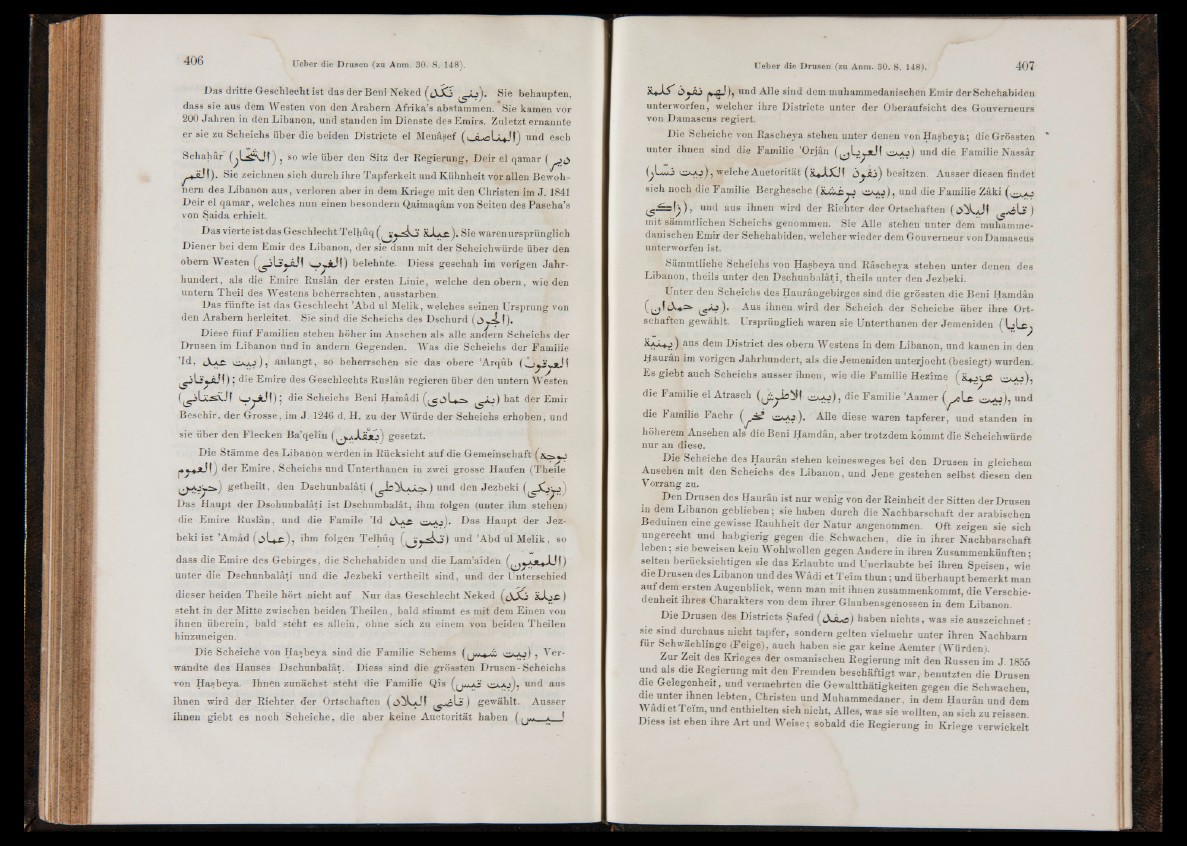 406
Ueber die Drusen (zu Anm. 30. S. 148).
Das dritte Geschlecht ist das der Beni Neked (بني نكد). Sie behaupten,
dass sie aus dem Westen von den Arabern Afrika's abstammen. Sie kamen vor
200 Jahren in den Libanon, und standen im Dienste des Emirs. Zuletzt ernannte
er sie zu Scheichs über die beiden Districte el Menâşef (المناصف) und esch
Schaḥâr (الشحار), so wie über den Sitz der Regierung, Deir el qamar (دير
القمر). Sie zeichnen sich durch ihre Tapferkeit und Kühnheit vor allen Bewoh-
nern des Libanon aus, verloren aber in dem Kriege mit den Christen im J. 1841
Deir el qamar, welches nun einen besondern Qaimaqâm von Seiten des Pascha's
von Şaida erhielt.
Das vierte ist das Geschlecht Telḥûq (عيلة تلحوق). Sie waren ursprünglich
Diener bei dem Emir des Libanon, der sie dann mit der Scheichwürde über den
obern Westen (الغرب الفوقاني) belehnte. Diess geschah im vorigen Jahr-
hundert, als die Emire Ruslân der ersten Linie, welche den obern, wie den
untern Theil des Westens beherrschten, ausstarben.
Das fünfte ist das Geschlecht 'Abd ul Melik, welches seinen Ursprung von
den Arabern herleitet. Sie sind die Scheichs des Dschurd (الجرد).
Diese fünf Familien stehen höher im Ansehen als alle andern Scheichs der
Drusen im Libanon und in andern Gegenden. Was die Scheichs der Familie
'Id, (بيت عيد), anlangt, so beherrschen sie das obere 'Arqûb (العرقوب
الفوقاني); die Emire des Geschlechts Ruslân regieren über den untern Westen
(الغرب التحتاني); die Scheichs Beni Ḥamâdi (بني حمادى) hat der Emir
Beschîr, der Grosse, im J. 1246 d. H. zu der Würde der Scheichs erhoben, und
sie über den Flecken Ba'qelîn (بعقلين) gesetzt.
Die Stämme des Libanon werden in Rücksicht auf die Gemeinschaft (بوجه
العموم) der Emire, Scheichs und Unterthanen in zwei grosse Haufen (Theile
حزبين) getheilt, den Dschunbalâṭi (جنبلاطي) und den Jezbeki (يزبكي)
Das Haupt der Dschunbalâṭi ist Dschumbalâṭ, ihm folgen (unter ihm stehen)
die Emire Ruslân, und die Famile 'Id (بيت عيد). Das Haupt der Jez-
beki ist 'Amâd (عماد), ihm folgen Telḥûq (تلحوق) und 'Abd ul Melik, so
dass die Emire des Gebirges, die Schehabiden und die Lam'aiden (اللمعيين)
unter die Dschunbalâṭi und die Jezbeki vertheilt sind, und der Unterschied
dieser beiden Theile hört nicht auf. Nur das Geschlecht Neked (عيلة نكد)
steht in der Mitte zwischen beiden Theilen, bald stimmt es mit dem Einen von
ihnen überein, bald steht es allein, ohne sich zu einem von beiden Theilen
hinzuneigen.
Die Scheiche von Ḥaşbeya sind die Familie Schems (بيت شمس), Ver-
wandte des Hauses Dschunbalâṭ. Diess sind die grössten Drusen-Scheichs
von Ḥaşbeya. Ihnen zunächst steht die Familie Qis (بيت قيس), und aus
ihnen wird der Richter der Ortschaften (قاضي البلاد) gewählt. Ausser
ihnen giebt es noch Scheiche, die aber keine Auctorität haben (ليس
Ueber die Drusen (zu Anm. 30. S. 148).
407
لهم نفوذ كلمة), und Alle sind dem muhammedanischen Emir der Schehabiden
unterworfen, welcher ihre Districte unter der Oberaufsicht des Gouverneurs
von Damascus regiert.
Die Scheiche von Rascheya stehen unter denen von Ḥaşbeya; die Grössten
unter ihnen sind die Familie 'Orjân (بيت العريان) und die Familie Nassâr
(بيت نسار), welche Auctorität (نفوذ الكلمة) besitzen. Ausser diesen findet
sich noch die Familie Berghesche (بيت برغشة), und die Familie Zâki (بيت
زاكي), und aus ihnen wird der Richter der Ortschaften (قاضي البلاد)
mit sämmtlichen Scheichs genommen. Sie Alle stehen unter dem muhamme-
danischen Emir der Schehabiden, welcher wieder dem Gouverneur von Damascus
unterworfen ist.
Sämmtliche Scheichs von Ḥaşbeya und Râscheya stehen unter denen des
Libanon, theils unter den Dschunbalâṭi, theils unter den Jezbeki.
Unter den Scheichs des Haurângebirges sind die grössten die Beni Ḥamdân
(بني حمدان). Aus ihnen wird der Scheich der Scheiche über ihre Ort-
schaften gewählt. Ursprünglich waren sie Unterthanen der Jemeniden (رعايا
يمنية) aus dem District des obern Westens in dem Libanon, und kamen in den
Ḥaurân im vorigen Jahrhundert, als die Jemeniden unterjocht (besiegt) wurden.
Es giebt auch Scheichs ausser ihnen, wie die Familie Hezîme (بيت هزيمة),
die Familie el Atrasch (بيت الاطرش), die Familie 'Aamer (بيت عامر), und
die Familie Fachr (بيت فخر). Alle diese waren tapferer, und standen in
höherem Ansehen als die Beni Ḥamdân, aber trotzdem kommt die Scheichwürde
nur an diese.
Die Scheiche des Ḥaurân stehen keinesweges bei den Drusen in gleichem
Ansehen mit den Scheichs des Libanon, und Jene gestehen selbst diesen den
Vorrang zu.
Den Drusen des Haurân ist nur wenig von der Reinheit der Sitten der Drusen
in dem Libanon geblieben; sie haben durch die Nachbarschaft der arabischen
Beduinen eine gewisse Rauhheit der Natur angenommen. Oft zeigen sie sich
ungerecht und habgierig gegen die Schwachen, die in ihrer Nachbarschaft
leben; sie beweisen kein Wohlwollen gegen Andere in ihren Zusammenkünften;
selten berücksichtigen sie das Erlaubte und Unerlaubte bei ihren Speisen, wie
die Drusen des Libanon und des Wâdi et Teîm thun; und überhaupt bemerkt man
auf dem ersten Augenblick, wenn man mit ihnen zusammenkommt, die Verschie-
denheit ihres Charakters von dem ihrer Glaubensgenossen in dem Libanon.
Die Drusen des Districts Şafed (صفد) haben nichts, was sie auszeichnet:
sie sind durchaus nicht tapfer, sondern gelten vielmehr unter ihren Nachbarn
für Schwächlinge (Feige), auch haben sie gar keine Aemter (Würden).
Zur Zeit des Krieges der osmanischen Regierung mit den Russen im J. 1855
und als die Regierung mit den Fremden beschäftigt war, benutzten die Drusen
die Gelegenheit, und vermehrten die Gewaltthätigkeiten gegen die Schwachen,
die unter ihnen lebten, Christen und Muhammedaner, in dem Haurân und dem
Wâdi et Teîm, und enthielten sich nicht, Alles, was sie wollten, an sich zu reissen.
Diess ist eben ihre Art und Weise; sobald die Regierung in Kriege verwickelt